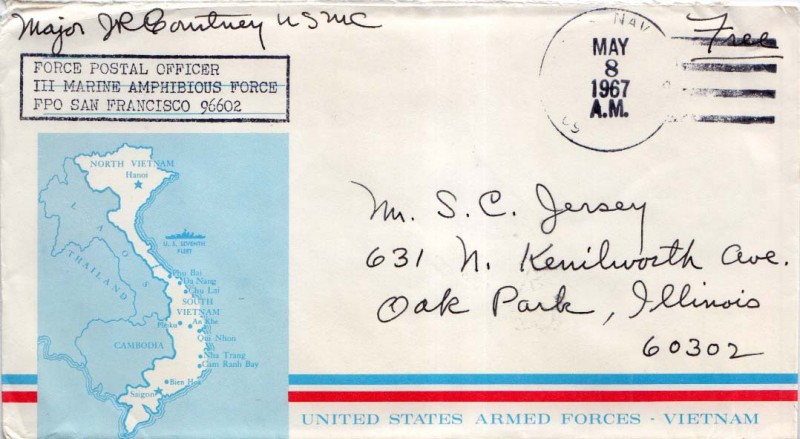 Major JR Courtney USMC
FORCE POSTAL OFFICER
III MARINE AMPHIBIOUS FORCE
FPO SAN FRANCISCO 96602
NAV
MAY
8
1967
A.M.
US
Free
NORTH VIETNAM
Hanoi
LAOS
U. S. SEVENTH
FLEET
THAILAND
Phu Bai
Da Nang
Chu Lai
SOUTH
VIETNAM
Pleiku
An Khe
Qui Nhon
CAMBODIA
Nha Trang
Cam Ranh Bay
Bien Hoa
Saigon
Mr. S. C. Jersey
631 N. Kenilworth Ave.
Oak Park, Illinois
60302
UNITED STATES ARMED FORCES - VIETNAM